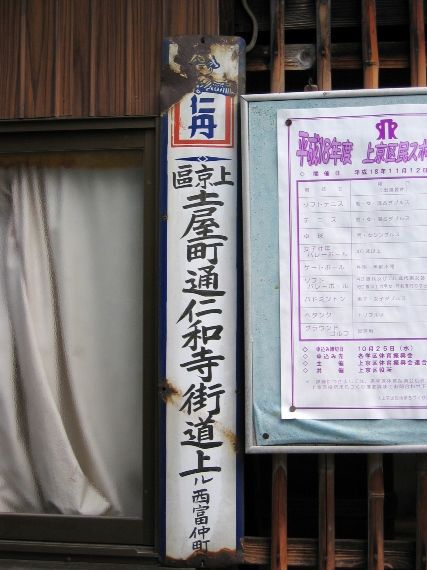 仁丹
上京區
土屋町通仁和寺街道上ル西富仲町
平成18年度 上京区民スポ
◇ 開催日 平成18年11月12
ソフトテニス
テニス
卓球
女子壮年
バレーボール
ゲートボール
ソフト
バレーボール
バドミントン
ペタンク
グラウンド
ゴルフ
トリプルス
◇ 申込み締切日 10月25日(水)
◇ 申込み先 各学区体育振興会
◇ 主催 上京区体育振興会連合
◇ 共催 上京区役所